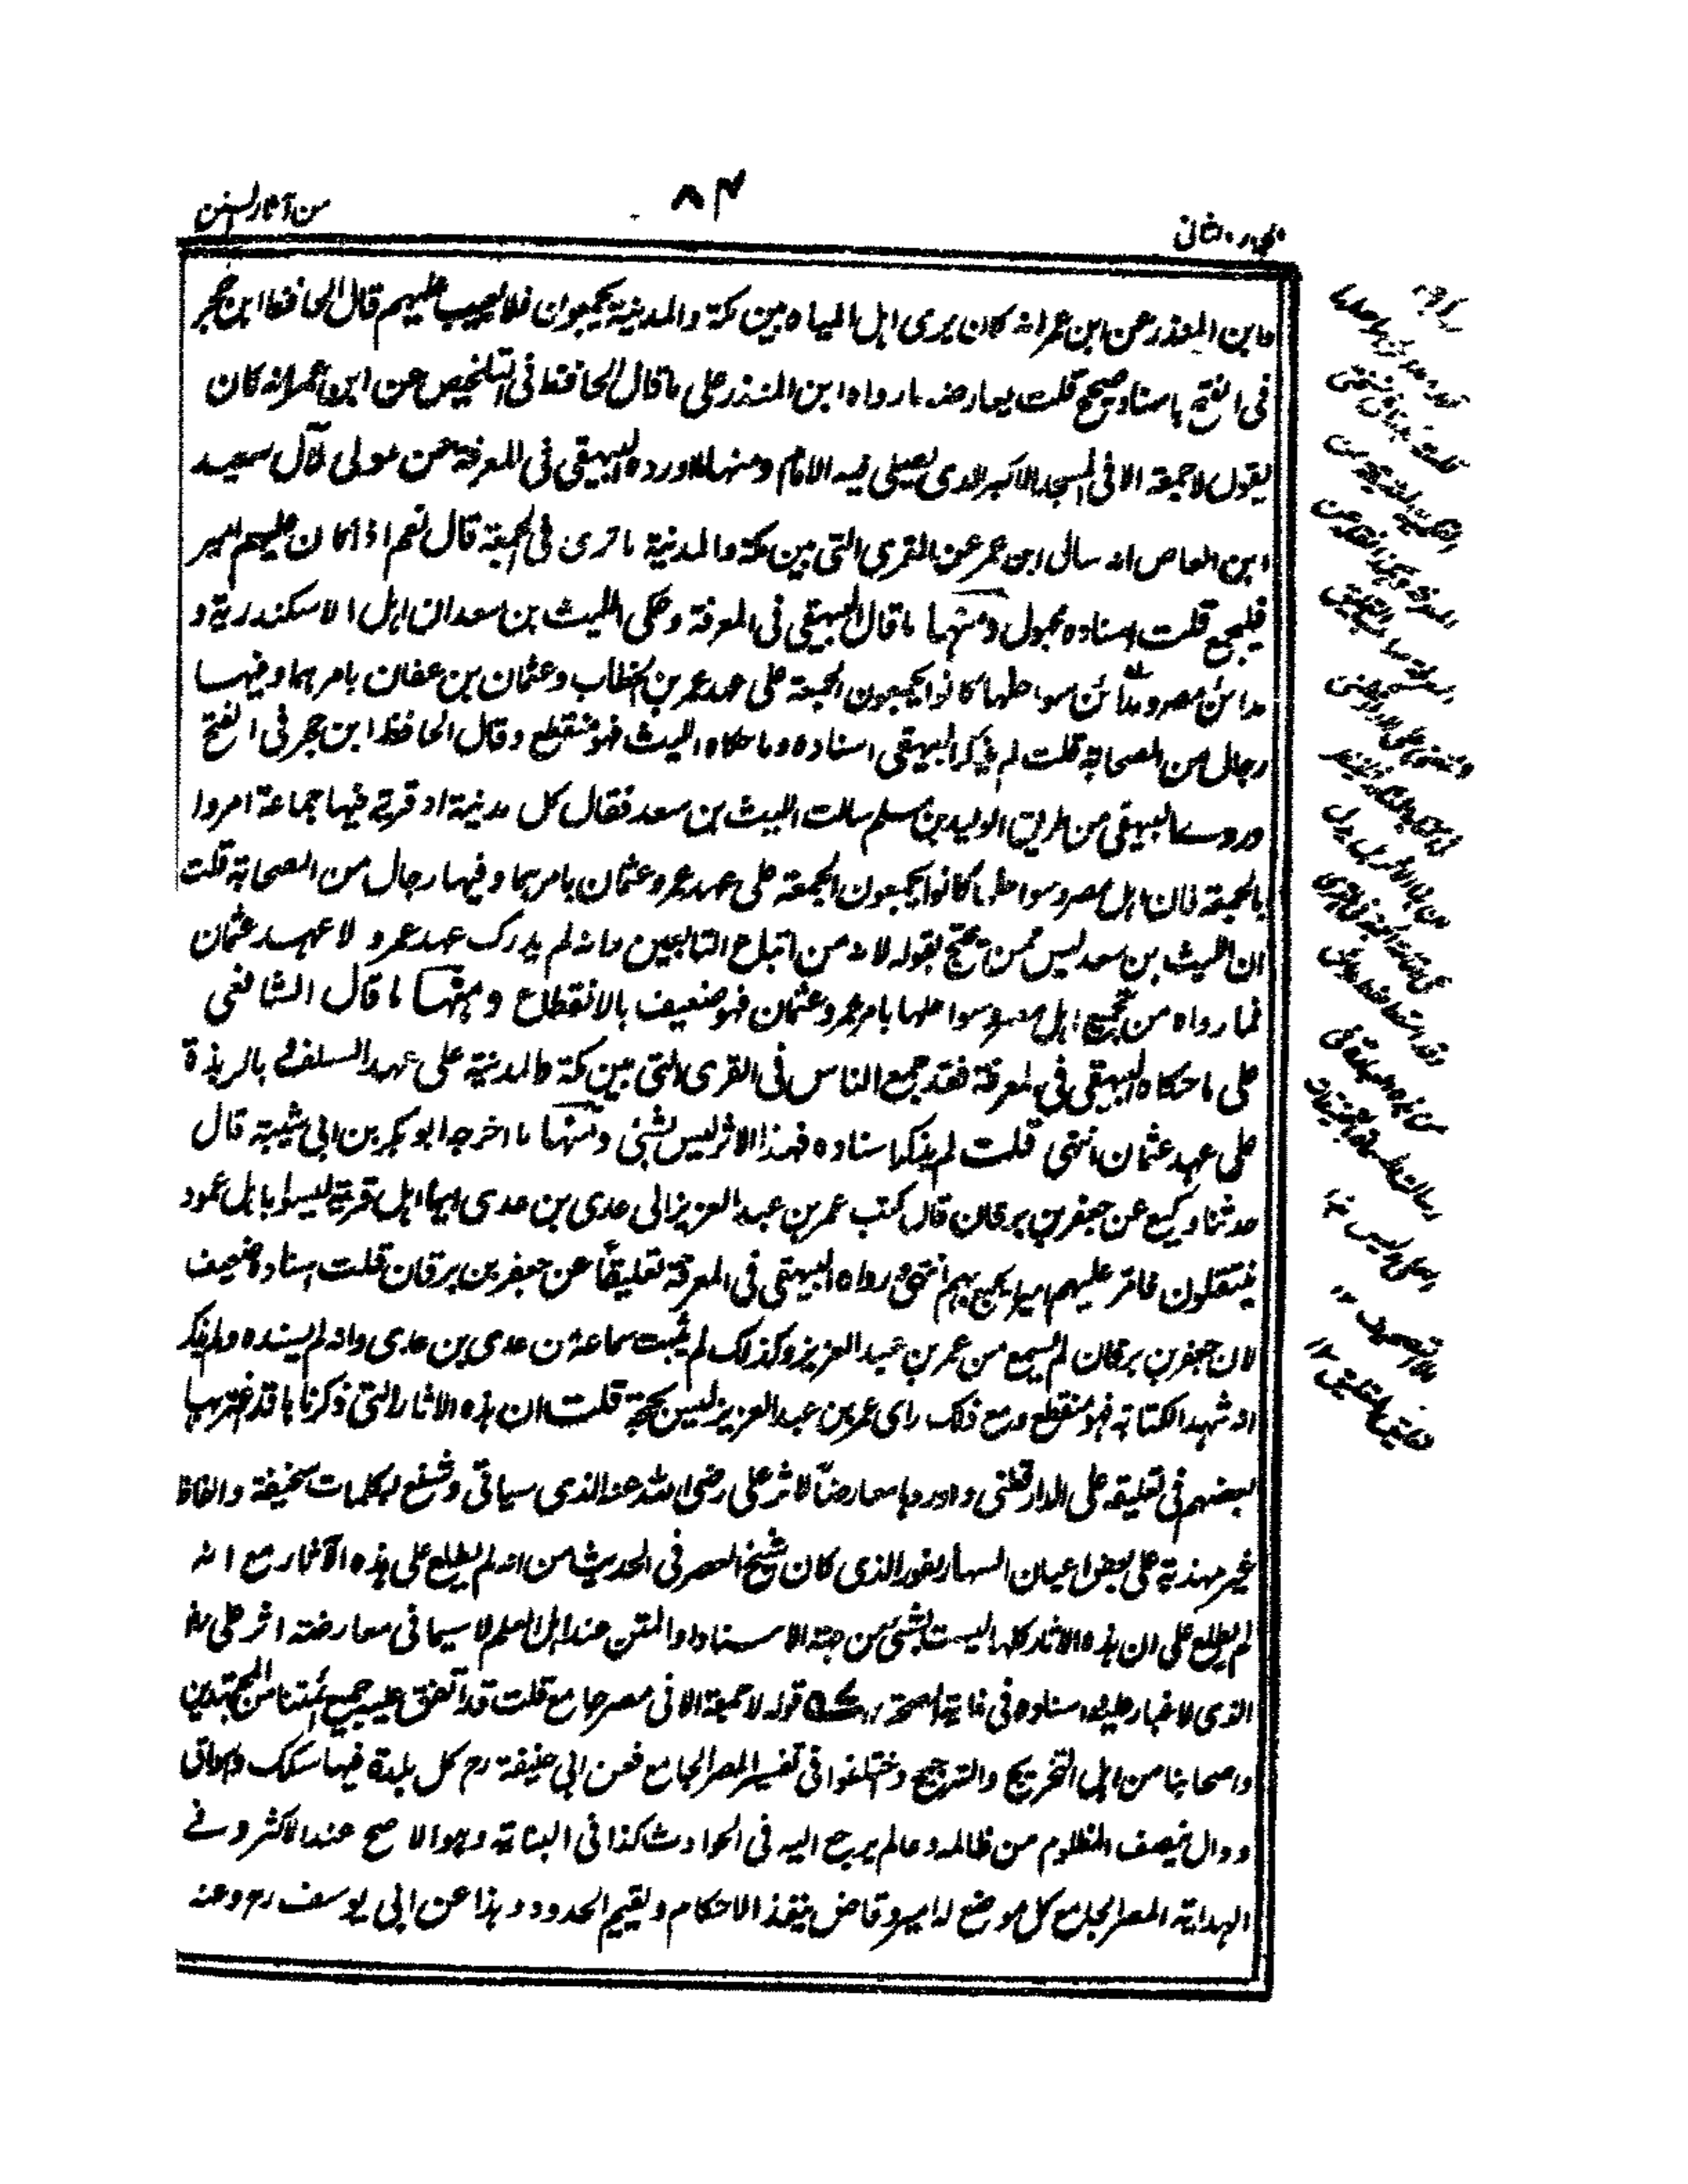 من آثار السنن
٨٤
الجزء الثاني
وابن المنذر عن ابن عمر انه كان يرى اهل المياه بين مكة والمدينة يجمعون فلا يعيب عليهم قال الحافظ ابن حجر
فى الفتح باسناد صحيح قلت يعارضه ما رواه ابن المنذر على ما قال الحافظ فى التلخيص عن ابن عمر انه كان
يقول لا جمعة الا فى المسجد الاكبر الذى يصلى فيه الامام ومنها ما اورده البيهقى فى المعرفة عن مولى لآل سعيد
ابن العاص انه سال ابن عمر عن القرى التى بين مكة والمدينة ما ترى فى الجمعة قال نعم اذا كان عليهم امير
فليجمع قلت اسناده مجهول ومنها ما قال البيهقى فى المعرفة وحكى الليث بن سعد ان اهل الاسكندرية و
مدائن مصر ومدائن سواحلها كانوا يجمعون الجمعة على عهد عمر بن الخطاب وعثمان بن عفان بامرهما وفيها
رجال من الصحابة قلت لم يذكر البيهقى اسناده وما حكاه الليث فهو منقطع وقال الحافظ ابن حجر فى الفتح
وروے البيهقى من طريق الوليد بن مسلم سالت الليث بن سعد فقال كل مدينة او قرية فيها جماعة امروا
بالجمعة فان اهل مصر وسواحلها كانوا يجمعون الجمعة على عهد عمر وعثمان بامرهما وفيها رجال من الصحابة قلت
ان الليث بن سعد ليس ممن يحتج بقوله لانه من اتباع التابعين وانه لم يدرك عهد عمر ولا عهد عثمان
فما رواه من تجميع اهل مصر وسواحلها بامر عمر وعثمان فهو ضعيف بالانقطاع ومنها ما قال الشافعى
على ما حكاه البيهقى فى المعرفة فقد جمع الناس فى القرى التى بين مكة والمدينة على عهد السلف وبالربذة
على عهد عثمان انتهى قلت لم يذكر اسناده فهذا الاثر ليس بشئ ومنها ما اخرجه ابو بكر بن ابى شيبة قال
حدثنا وكيع عن جعفر بن برقان قال كتب عمر بن عبد العزيز الى عدى بن عدى ايما اهل قرية ليسوا باهل عمود
ينتقلون فامر عليهم اميرا يجمع بهم انتهى ورواه البيهقى فى المعرفة تعليقًا عن جعفر بن برقان قلت اسناده ضعيف
لان جعفر بن برقان لم يسمع من عمر بن عبد العزيز وكذلك لم يثبت سماعه من عدى بن عدى وانه لم يسنده ولم يذكر
انه شهد الكتابة فهو منقطع ومع ذلك راى عمر بن عبد العزيز ليس بحجة قلت ان هذه الآثار التى ذكرناها قد اغتر بها
بعضهم فى تعليقه على الدارقطنى واوردها معارضًا لاثر على رضى الله عنه الذى سياتى وشنع بكلمات سخيفة والفاظ
غير مهذبة على بعض اعيان السهارنفور الذى كان شيخ العصر فى الحديث من انه لم يطلع على هذه الآثار مع انه
لم يطلع على ان هذه الآثار كلها ليست بشئ من جهة الاسناد او المتن عند اهل العلم لا سيما فى معارضته اثر على هذا
الذى لا غبار عليه واسناده فى غاية الصحة قوله لا جمعة الا فى مصر جامع قلت قد اتفق عليه جميع ائمتنا من المجتهدين
واصحابنا من اهل التخريج والترجيح واختلفوا فى تفسير المصر الجامع فعن ابى حنيفة رح كل بلدة فيها سكك واسواق
ووال ينصف المظلوم من ظالمه وعالم يرجع اليه فى الحوادث كذا فى البناية وهو الاصح عند الاكثر وفے
الهداية المصر الجامع كل موضع له امير وقاض ينفذ الاحكام ويقيم الحدود وهذا عن ابى يوسف رح وعنه